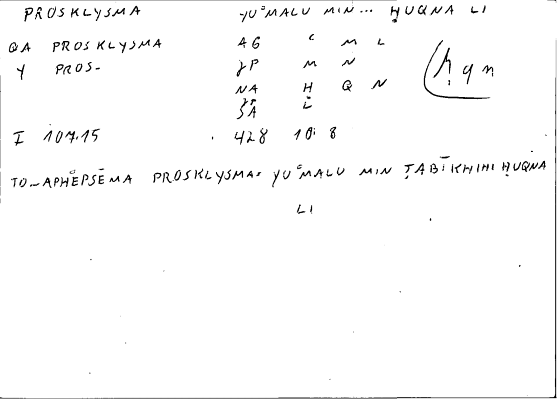 PROSKLYSMA YUᶜMALU MIN... ḤUQNA LI
QA PROSKLYSMA AG C M L
Y PROS- YP M N
NA H Q N
SA L
I 107.15 428 10: 8
(ḥqn
TO-APHEPSĒMA PROSKLYSMA= YUᶜMALU MIN ṬABĪKHIHI ḤUQNA
LI